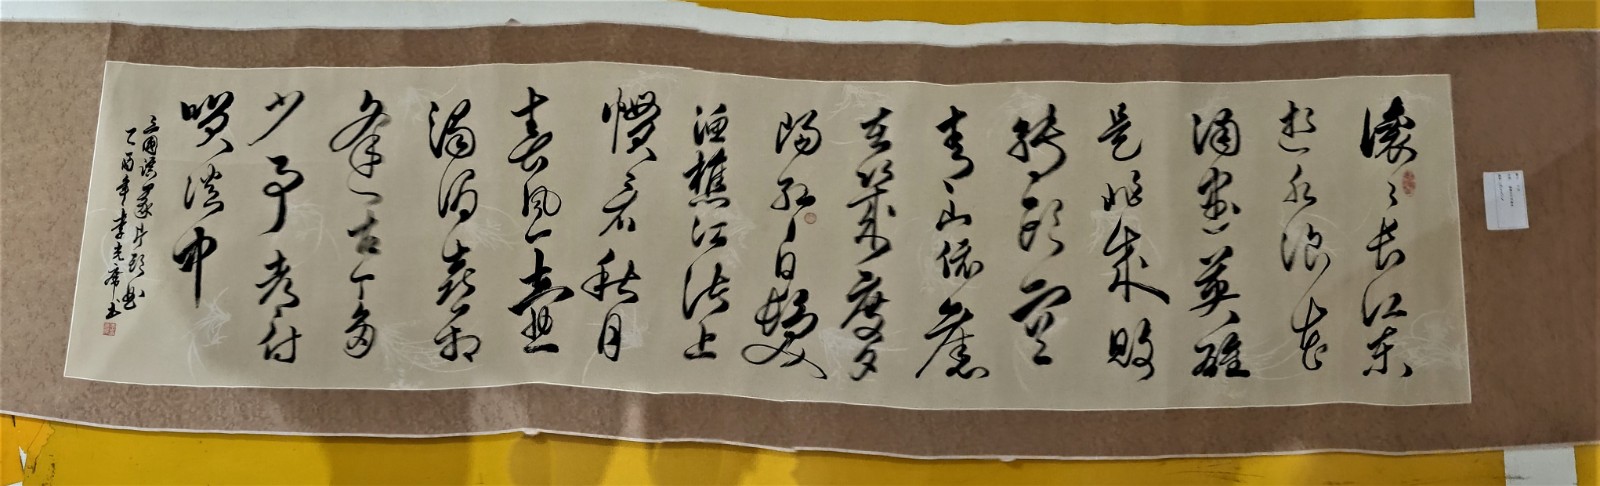 滚滚长江东
逝水浪花
淘尽英雄
是非成败
转头空
青山依旧
在几度夕
阳红白发
渔樵江渚上
惯看秋月
春风一壶
浊酒喜相
逢古今多
少事都付
笑谈中
三国演义片头曲
乙酉年李光书